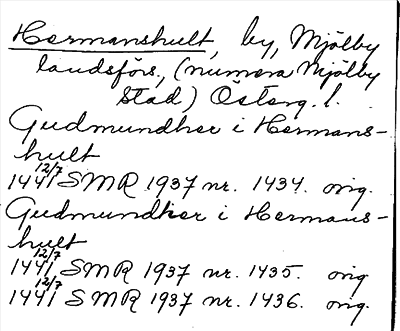 Hermanshult, by, Mjölby
landsförs., (numera Mjölby
stad) Österg. l.
Gudmundher i Hermans-
hult
12/7
1441 SMR 1937 nr. 1434. orig.
Gudmundher i Hermans-
hult
12/7
1441 SMR 1937 nr. 1435. orig
12/7
1441 SMR 1937 nr. 1436. orig.